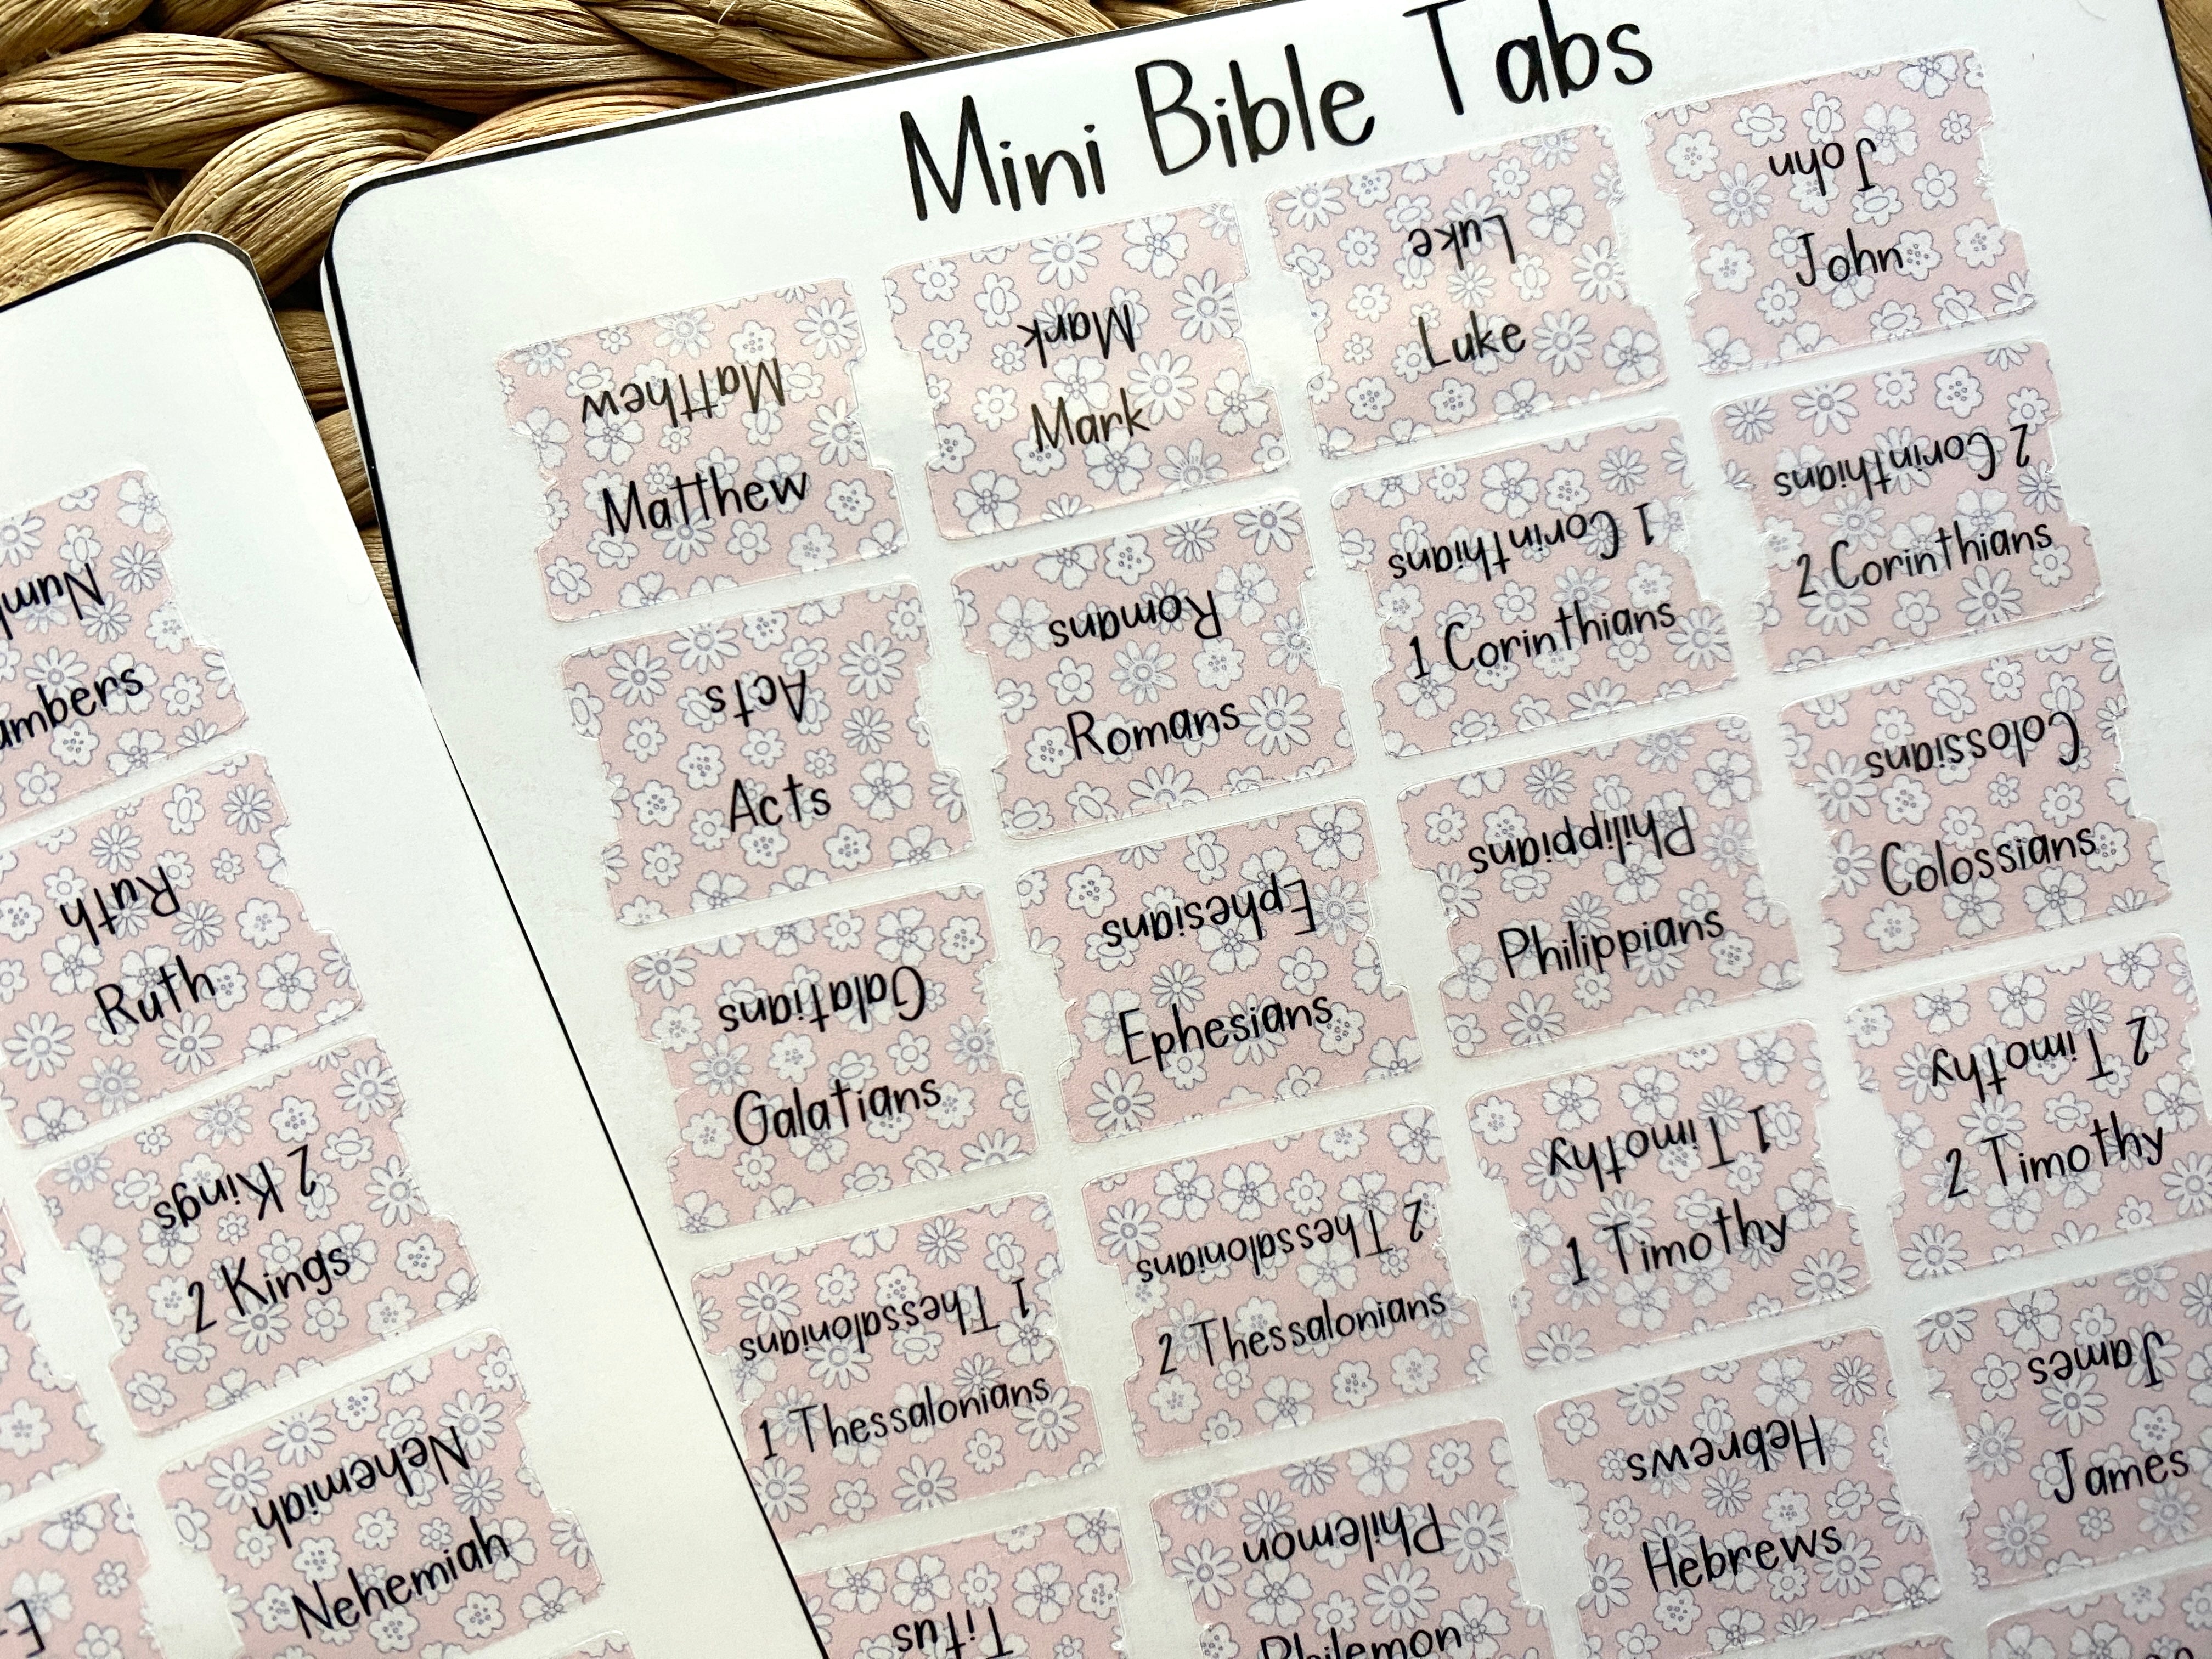 Mini Bible Tabs
Matthew
Matthew
Mark
Mark
Luke
Luke
John
John
Acts
Acts
Romans
Romans
1 Corinthians
1 Corinthians
2 Corinthians
2 Corinthians
Galatians
Galatians
Ephesians
Ephesians
Philippians
Philippians
Colossians
Colossians
1 Thessalonians
1 Thessalonians
2 Thessalonians
2 Thessalonians
1 Timothy
1 Timothy
2 Timothy
2 Timothy
Titus
Philemon
Philemon
Hebrews
Hebrews
James
James
Num
umbers
Ruth
Ruth
2 Kings
2 Kings
Nehemiah
Nehemiah